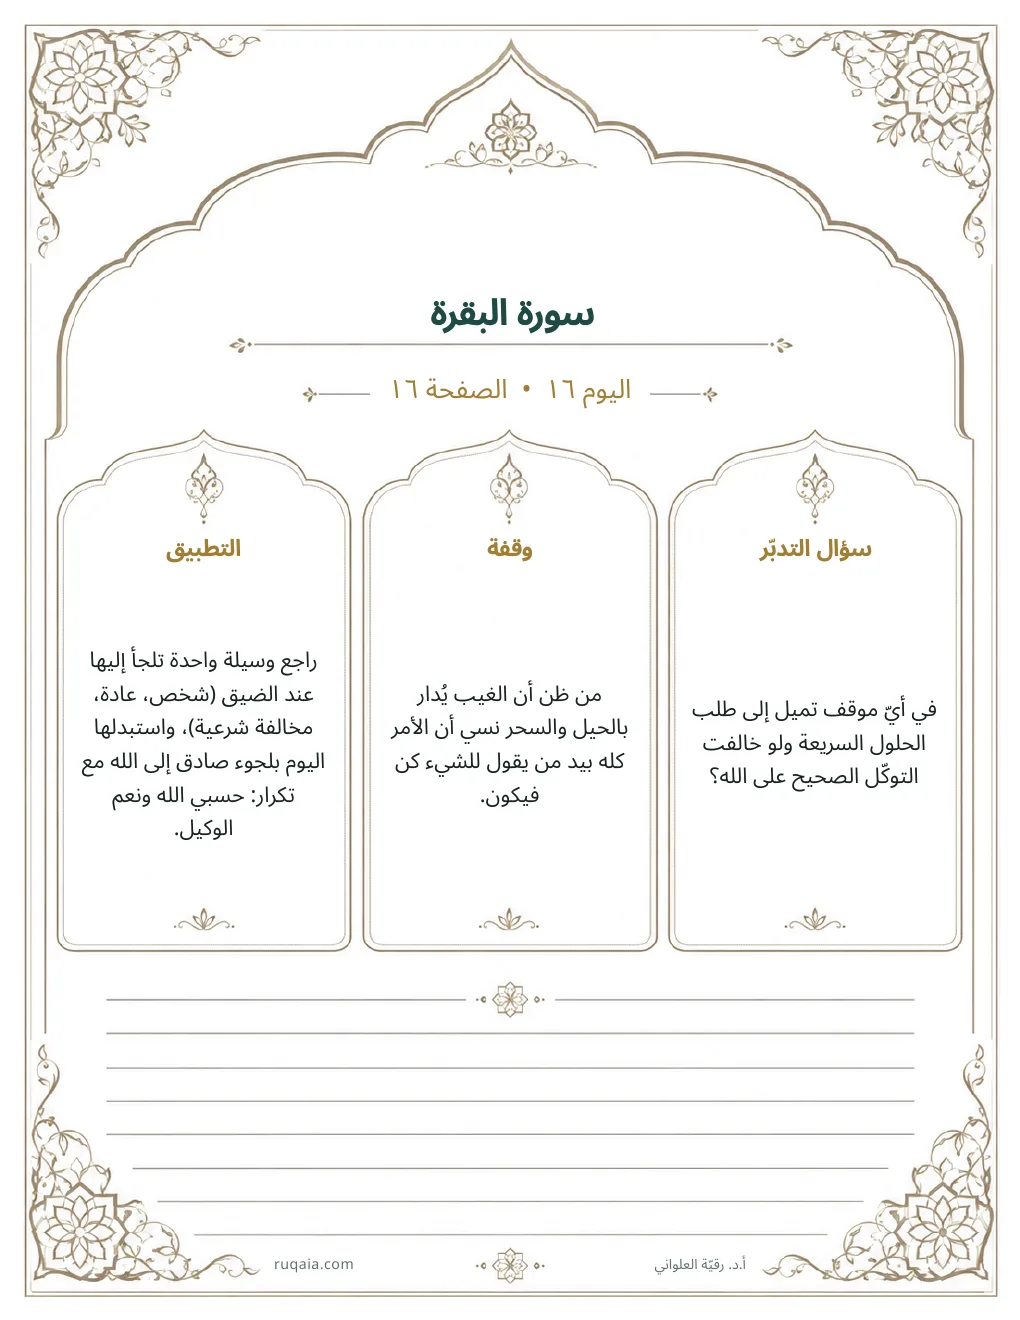 سورة البقرة
اليوم ١٦ • الصفحة ١٦
سؤال التدبّر
في أيّ موقف تميل إلى طلب
الحلول السريعة ولو خالفت
التوكّل الصحيح على الله؟
وقفة
من ظن أن الغيب يُدار
بالحيل والسحر نسي أن الأمر
كله بيد من يقول للشيء كن
فيكون.
التطبيق
راجع وسيلة واحدة تلجأ إليها
عند الضيق (شخص، عادة،
مخالفة شرعية)، واستبدلها
اليوم بلجوء صادق إلى الله مع
تكرار: حسبي الله ونعم
الوكيل.
أ.د. رقيّة العلواني
ruqaia.com